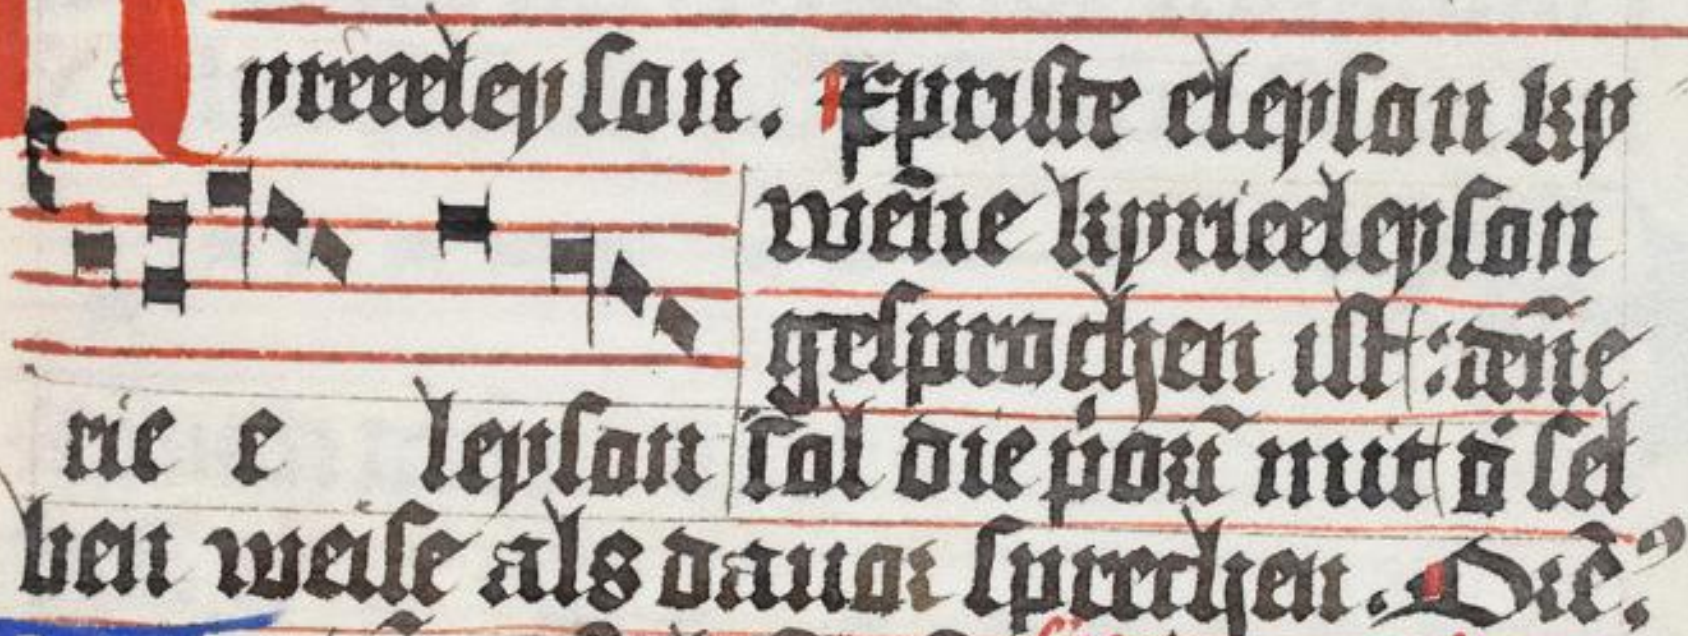 K yrieeleyson. Xpriste eleyson ky
rie e leyson
wēne kyrieeleyson
gesprochen ist : dēne
sol die priorī mit d' sel
ben weise als dauor sprechen. Orē?